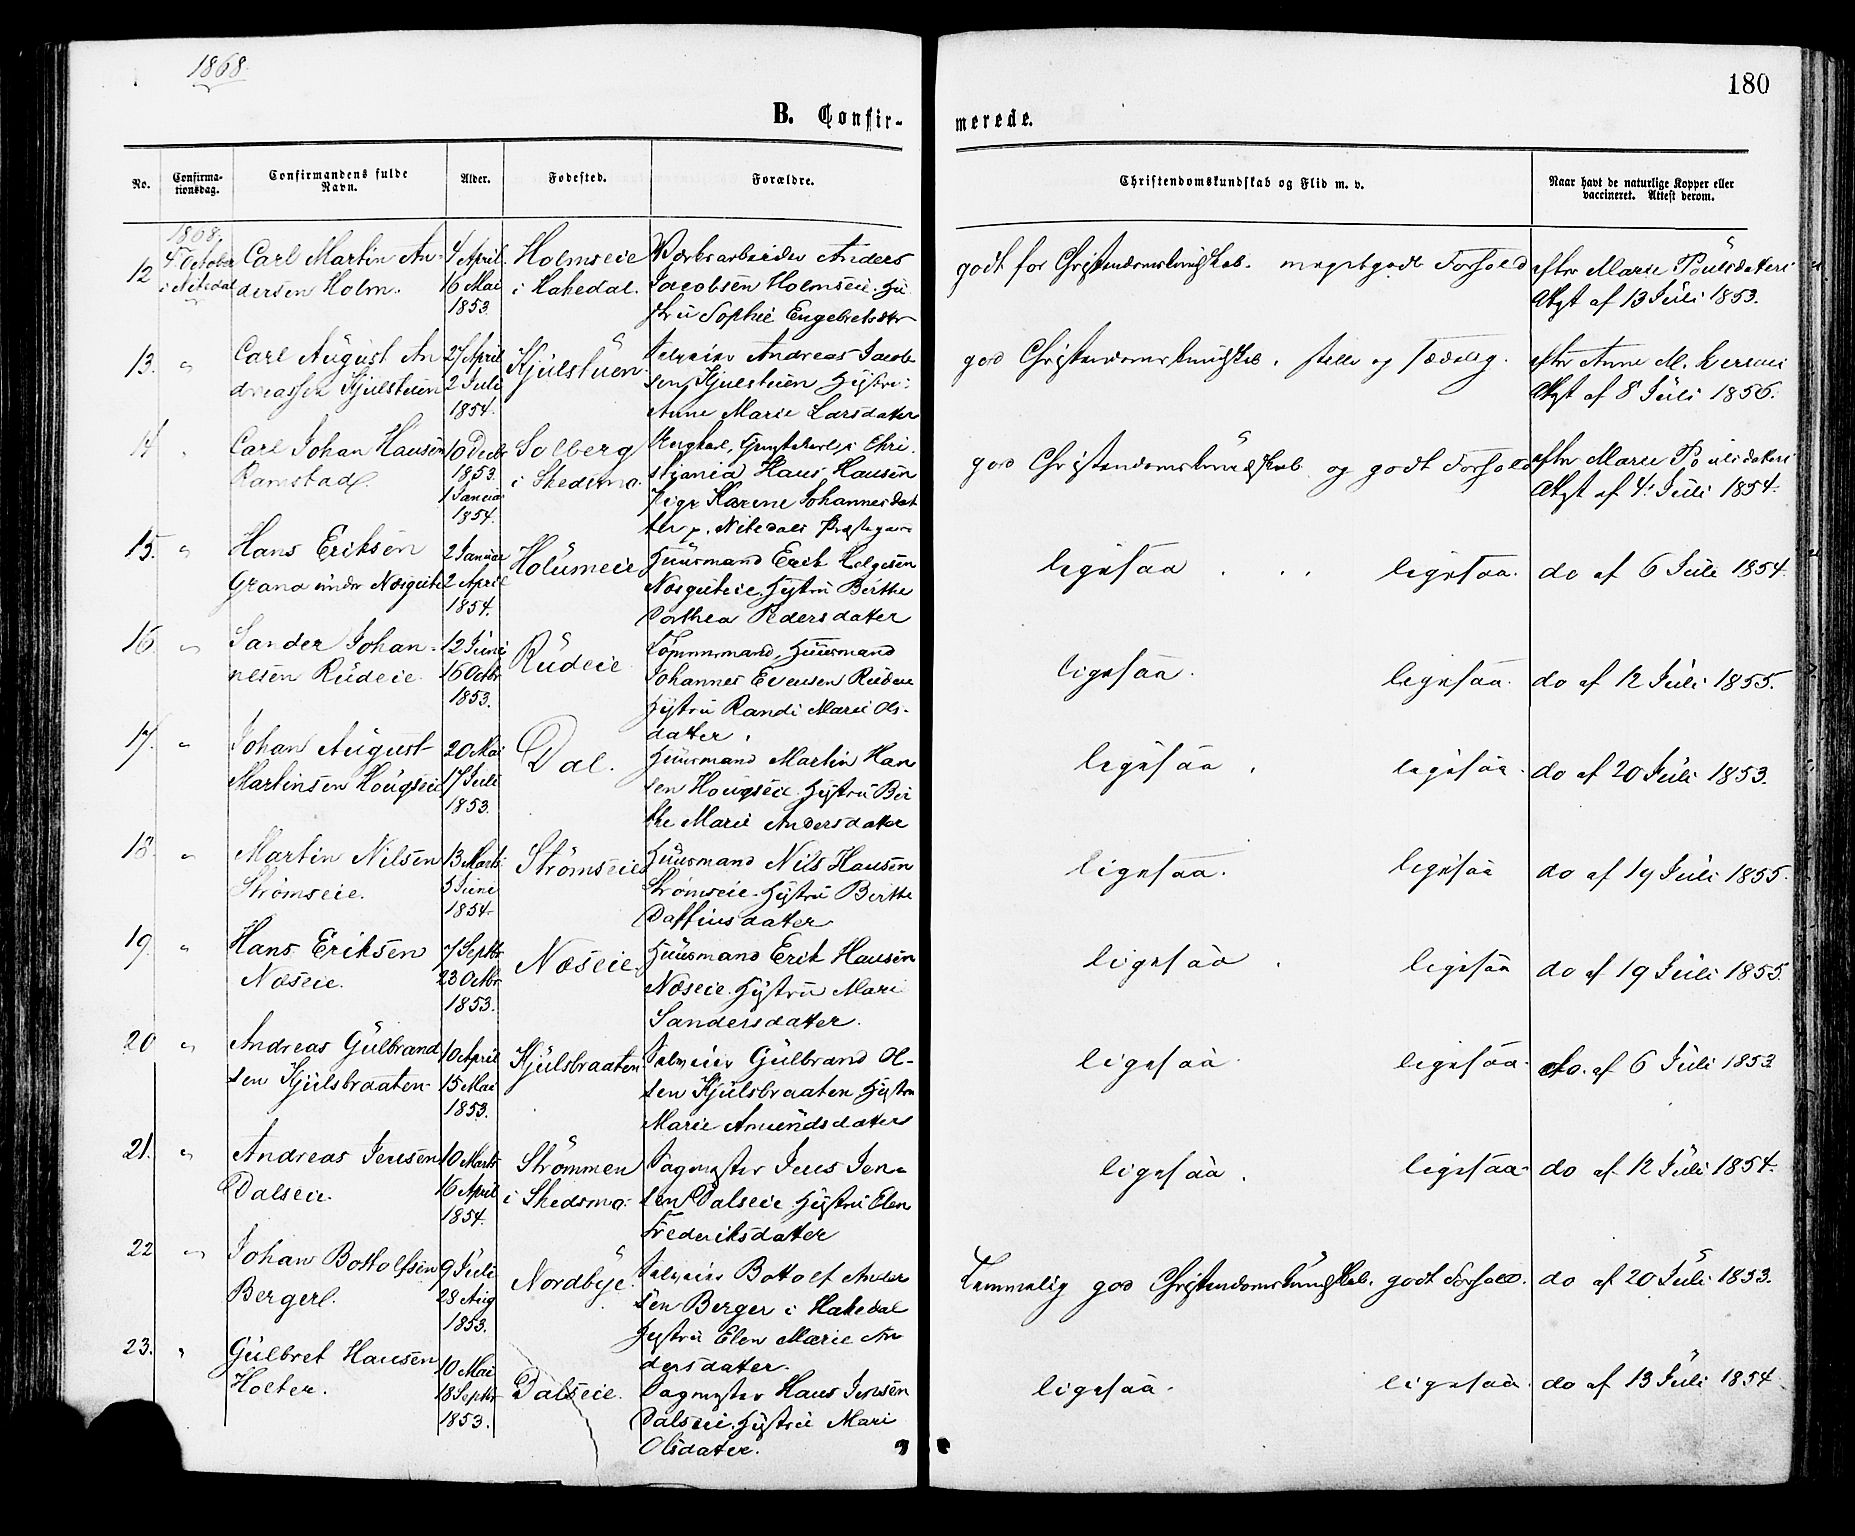 1868.
180
B. Confir-
merede.
No.
Confirma-
tionsdag.
Confirmandens fulde
Navn.
Alder.
Fødested.
Forældre.
Christendomskundskab og Flid m. v.
Naar havt de naturlige Kopper eller
vaccineret. Attest derom.
1868.
12 4 October Carl Martin An- 4 April Holmseie Anders godt for Christendomskundskab. meget godt Forhold efter Marie Poulsdatters
i Nitedal dersen Holm. 16 Mai i Hakedal. Jacobsen Holmseie. Hu
1853. stru Sophie Engebretsdtr Attest af 13 Juli 1853.
13. " Carl August An 27 April Kjulstuen Selveier Andreas Jacob god Christendomskundskab. stille og sædelig. efter Anne M.
dreassen Kjulstuen 2 Juli sen Kjulstuen Hustru:
1854. Anne Marie Larsdatter Attest af 8 Juli 1856.
14 " Carl Johan Hansen 10 Decbr Solberg Ungkarl, Chri- god Christendomskundskab og godt Forhold efter Marie Poulsdatters
Ramstad. 1853. i Skedsmo. stiania Hans Hansen
1 Januar Pige Karene Johannesdat Attest af 4: Juli 1854.
1854. ter p. Nitedals Præstegaard
15. " Hans Eriksen 2 Januar Holumeie Huusmand Erik Helgesen ligesaa ligesaa. do af 6 Juli 1854.
Grana under 2 April Hustru Birthe
1854. Dorthea Pedersdatter
16. " Sander Johan- 12 Juni Rudeie Tømmermand, Huusmand ligesaa. ligesaa. do af 12 Juli 1855.
nesen Rudeie 16 Octbr Johannes Evensen Rudeie
1853. Hustru Randi Marie Ols-
datter.
17. " Johan August 20 Mai Dal. Huusmand Martin Han ligesaa ligesaa. do af 20 Juli 1853.
Martinsen Hougseie 17 Juli sen Hougseie. Hustru Bir
1853. the Marie Andersdatter
18. " Martin Nilsen 13 Marts Strömseie Huusmand Nils Hansen ligesaa. ligesaa do af 19 Juli 1855.
Strömseie. 5 Juni Strømseie. Hustru Birthe
1854. Daffinsdatter
19. " Hans Eriksen 7 Septbr Næseie. Huusmand Erik Hansen ligesaa ligesaa do af 19 Juli 1855
Næseie. 23 Octbr Næseie. Hustru Mari
1853. Sandersdatter.
20 " Andreas Gulbrand 10 April Kjulsbraaten Selveier Gulbrand Ol- ligesaa ligesaa. do. af 6 Juli 1853
sen Kjulsbraaten 15 Mai sen Kjulsbraaten Hustru
1853. Marie Amundsdatter
21. " Andreas Jensen 10 Marts Strömmen Sagmester Jens Jen- ligesaa. ligesaa do af 12 Juli 1854.
Dalseie. 16 April i Skedsmo. sen Dalseie. Hustru Elen
1854. Frederiksdatter
22 " Johan Bottolfsen 9 Juli Nordbye. Selveier Bottolf Ander Temmelig god Christendomskundskab. godt Forhold. do af 20 Juli 1853.
Berger. 28 Aug sen Berger i Hakedal
1853. Hustru Elen Marie An
dersdatter.
23. " Gulbret Hansen 10 Mai Dalseie. Sagmester Hans Jensen ligesaa. ligesaa. do af 13 Juli 1854
Holter. 18 Septbr Dalseie. Hustru Mari
1853. Olsdatter.